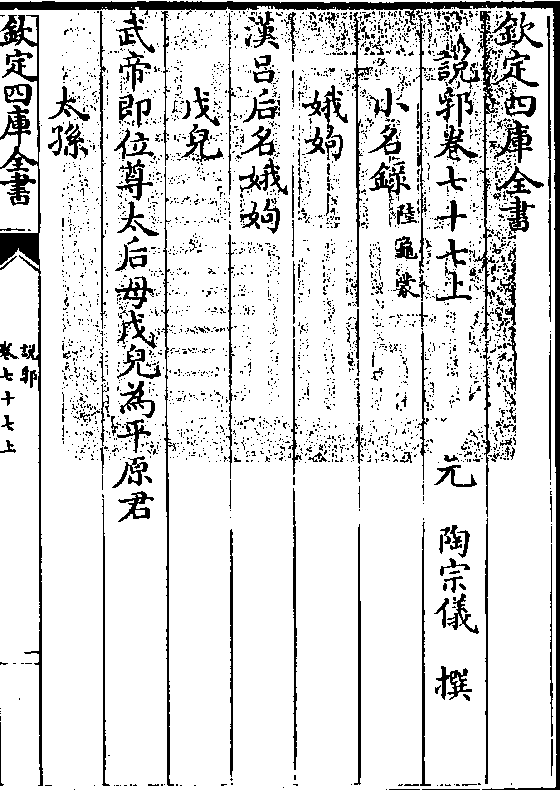 欽定四庫全書
說郛卷七十七上 元 陶宗儀 撰
小名錄 陸龜蒙
娥姁
漢吕后名娥姁
戊兒
武帝即位尊太后母戊兒為平原君
太孫
欽定四庫全書
說郛
卷七十七上
一